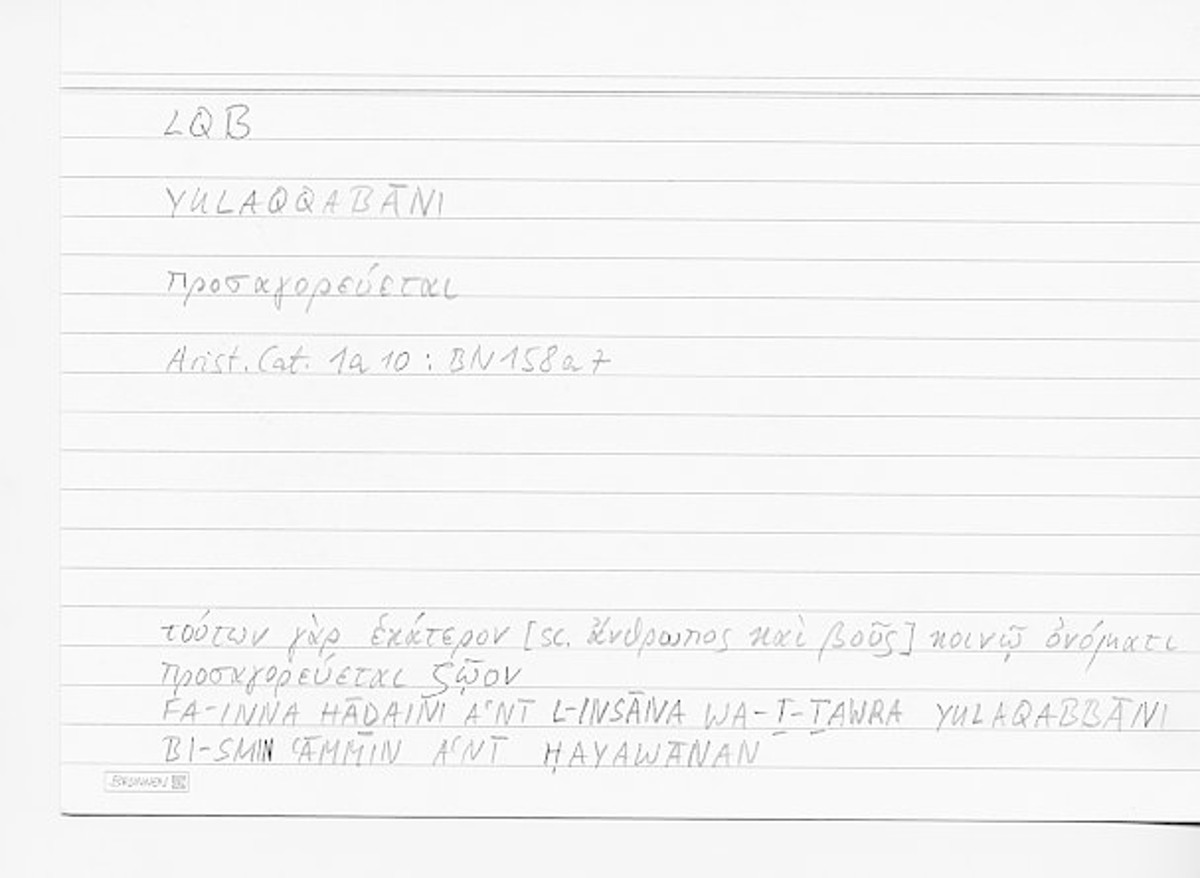 LQB
YULAQQABĀNI
προσαγορεύεται
Arist. Cat. 1a 10 : BN 158a7
τούτων γὰρ ἑκάτερον [sc. ἄνθρωπος καὶ βοῦς] κοινῷ ὀνόματι
προσαγορεύεται ζῷον
FA-INNA HĀḎAINI AʿNĪ L-INSĀNA WA-Ṯ-ṮAWRA YULAQABBĀNI
BI-SMIN ʿĀMMIN AʿNĪ ḤAYAWĀNAN
BRUNNEN